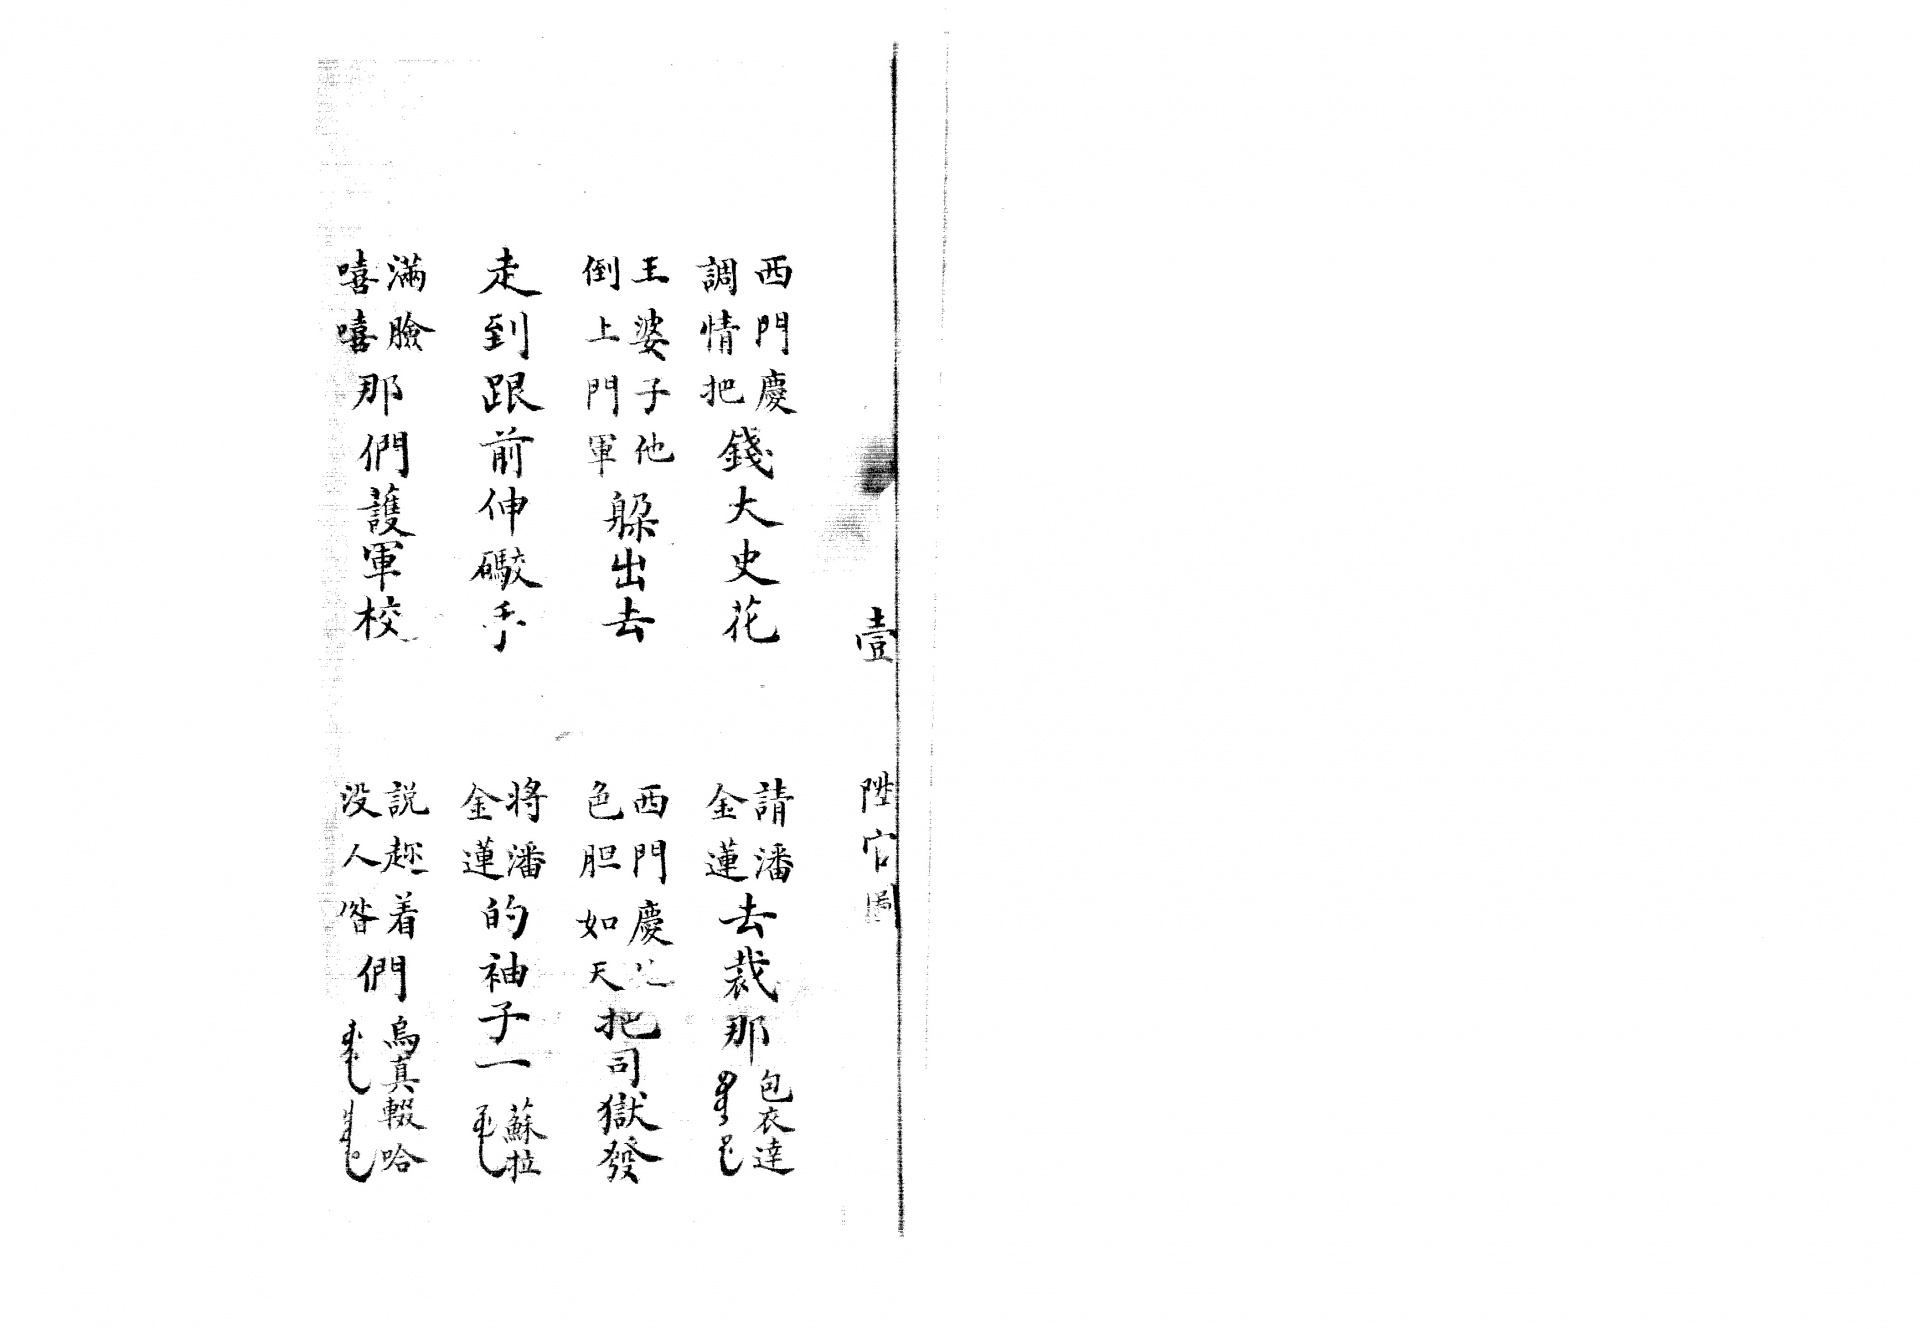 壹　陞官圖
西門慶調情把錢大史花　請潘金蓮去裁那包衣達 ᠪᠣᠣᡳ ᡩᠠ
王婆子他倒上門軍躱出去　西門慶色胆如天把司獄發
走到跟前伸礮手　將潘金蓮的袖子一蘇拉 ᠰᡠᠯᠠ
滿臉嘻嘻那們護軍校　説趂着没人偺們烏真輟哈 ᡠᠵᡝᠨ ᠴᠣᠣᡥᠠ